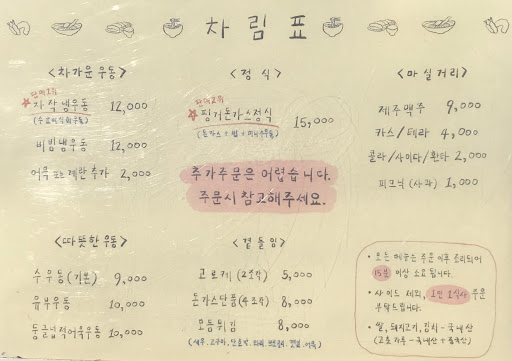 차림표
<차가운 우동>
판매1위
자작냉우동 12,000
비빔냉우동 12,000
어묵 또는 계란 추가 2,000
<따뜻한 우동>
수우동(기본) 9,000
유부우동 10,000
둥글넙적어묵우동 10,000
<정식>
판매2위
핑거돈가스정식 15,000
(돈가스 + 밥 + 미니우동)
추가주문은 어렵습니다.
주문시 참고해주세요.
<곁들임>
고로케(2조각) 5,000
돈가스단품(4조각) 8,000
모듬튀김 8,000
<마실거리>
제주맥주 9,000
카스/테라 4,000
콜라/사이다/환타 2,000
피크닉(사과) 1,000
• 모든 메뉴는 주문 이후 조리되어
15분 이상 소요됩니다.
• 사이드 제외, 1인 1식사 주문
부탁드립니다.
• 쌀, 돼지고기, 김치 - 국내산
(고춧가루 - 국내산 + 중국산)